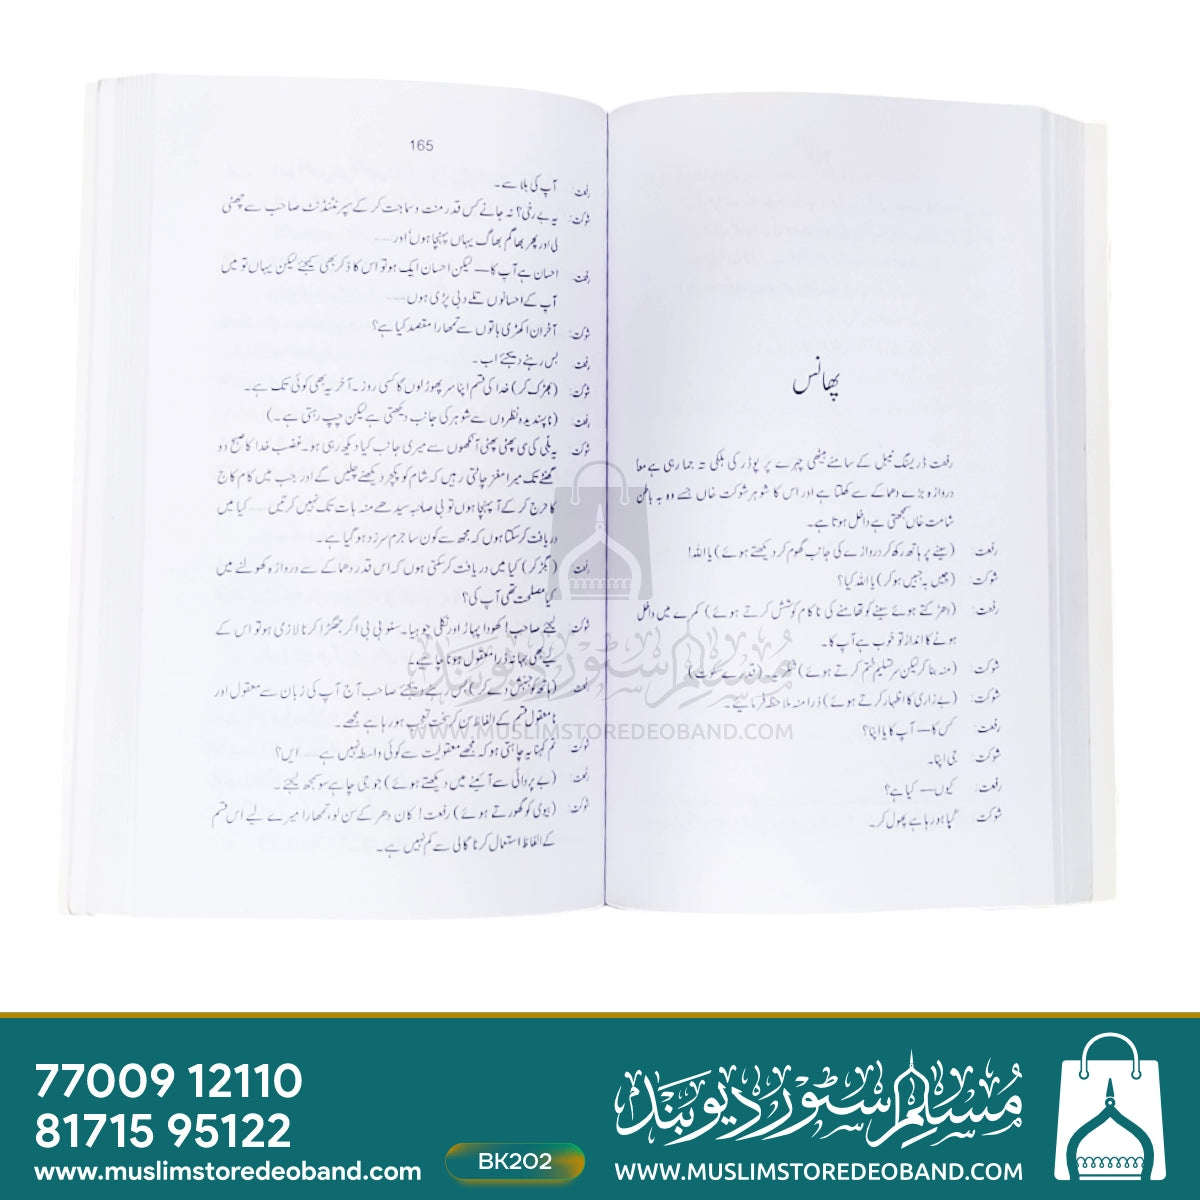 پھانس
رفعت ڈریسنگ ٹیبل کے سامنے بیٹھی چہرے پر پوڈر کی ہلکی تہ جما رہی ہے معاً
دروازہ بڑے دھماکے سے کھلتا ہے اور اس کا شوہر شوکت خاں جسے وہ بہ باطن
شامت خاں سمجھتی ہے داخل ہوتا ہے۔
رفعت: (سینے پر ہاتھ رکھ کر دروازے کی جانب گھوم کر دیکھتے ہوئے) یا اللہ!
شوکت: (چیں بہ جبیں ہو کر) یا اللہ کیا؟
رفعت: (دھڑکتے ہوئے سینے کو تھامنے کی ناکام کوشش کرتے ہوئے) کمرے میں داخل
ہونے کا انداز تو خوب ہے آپ کا۔
شوکت: (منہ بنا کر لیکن سر تسلیم خم کرتے ہوئے) شکریہ۔ (قدرے سکوت)
شوکت: (بے زاری کا اظہار کرتے ہوئے) ذرا منہ ملاحظہ فرمائیے۔
رفعت: کس کا — آپ کا یا اپنا؟
شوکت: جی اپنا۔
رفعت: کیوں — کیا ہے؟
شوکت: کپا ہو رہا ہے پھول کر۔
165
رفعت: آپ کی بلا سے۔
شوکت: یہ بے رخی؟ نہ جانے کس قدر منت و سماجت کر کے سپرنٹنڈنٹ صاحب سے چھٹی
لی اور پھر بھاگم بھاگ یہاں پہنچا ہوں اور......
رفعت: احسان ہے آپ کا — لیکن احسان ایک ہو تو اس کا ذکر بھی کیجئے لیکن یہاں تو میں
آپ کے احسانوں تلے دبی پڑی ہوں......
شوکت: آخر ان اکھڑی باتوں سے تمھارا مقصد کیا ہے؟
رفعت: بس رہنے دیجئے اب۔
شوکت: (بھڑک کر) خدا کی قسم اپنا سر پھوڑ لوں گا کسی روز۔ آخر یہ بھی کوئی تک ہے۔
رفعت: (ناپسندیدہ نظروں سے شوہر کی جانب دیکھتی ہے لیکن چپ رہتی ہے۔)
شوکت: یہ بلی کی سی پھٹی پھٹی آنکھوں سے میری جانب کیا دیکھ رہی ہو۔ غضب خدا کا صبح دو
گھنٹے تک میرا مغز چاٹتی رہیں کہ شام کو پکچر دیکھنے چلیں گے اور جب میں کام کاج
کا حرج کر کے آ پہنچا ہوں تو بی صاحبہ سیدھے منہ بات تک نہیں کرتیں...... کیا میں
دریافت کر سکتا ہوں کہ مجھ سے کون سا جرم سرزد ہو گیا ہے۔
رفعت: (بگڑ کر) کیا میں دریافت کر سکتی ہوں کہ اس قدر دھماکے سے دروازہ کھولنے میں
کیا مصلحت تھی آپ کی؟
شوکت: لیجئے صاحب! کھودا پہاڑ اور نکلی چوہیا۔ سنو بی بی اگر جھگڑا کرنا لازمی ہو تو اس کے
لیے بھی بہانہ ذرا معقول ہونا چاہیے۔
رفعت: (ہاتھ کو جنبش دے کر) بس رہنے دیجئے صاحب آج آپ کی زبان سے معقول اور
نامعقول قسم کے الفاظ سن کر سخت تعجب ہو رہا ہے مجھے۔
شوکت: تم کہنا یہ چاہتی ہو کہ مجھے معقولیت سے کوئی واسطہ نہیں ہے...... ایں؟
رفعت: (بے پروائی سے آئینے میں دیکھتے ہوئے) جو جی چاہے سو سمجھ لیجئے۔
شوکت: (بیوی کو گھورتے ہوئے) رفعت! کان دھر کے سن لو، تمھارا میرے لیے اس قسم
کے الفاظ استعمال کرنا گالی سے کم نہیں ہے۔
مسلم سٹور دیوبند
WWW.MUSLIMSTOREDEOBAND.COM
77009 12110
81715 95122
www.muslimstoredeoband.com
BK202
مسلم سٹور دیوبند
WWW.MUSLIMSTOREDEOBAND.COM